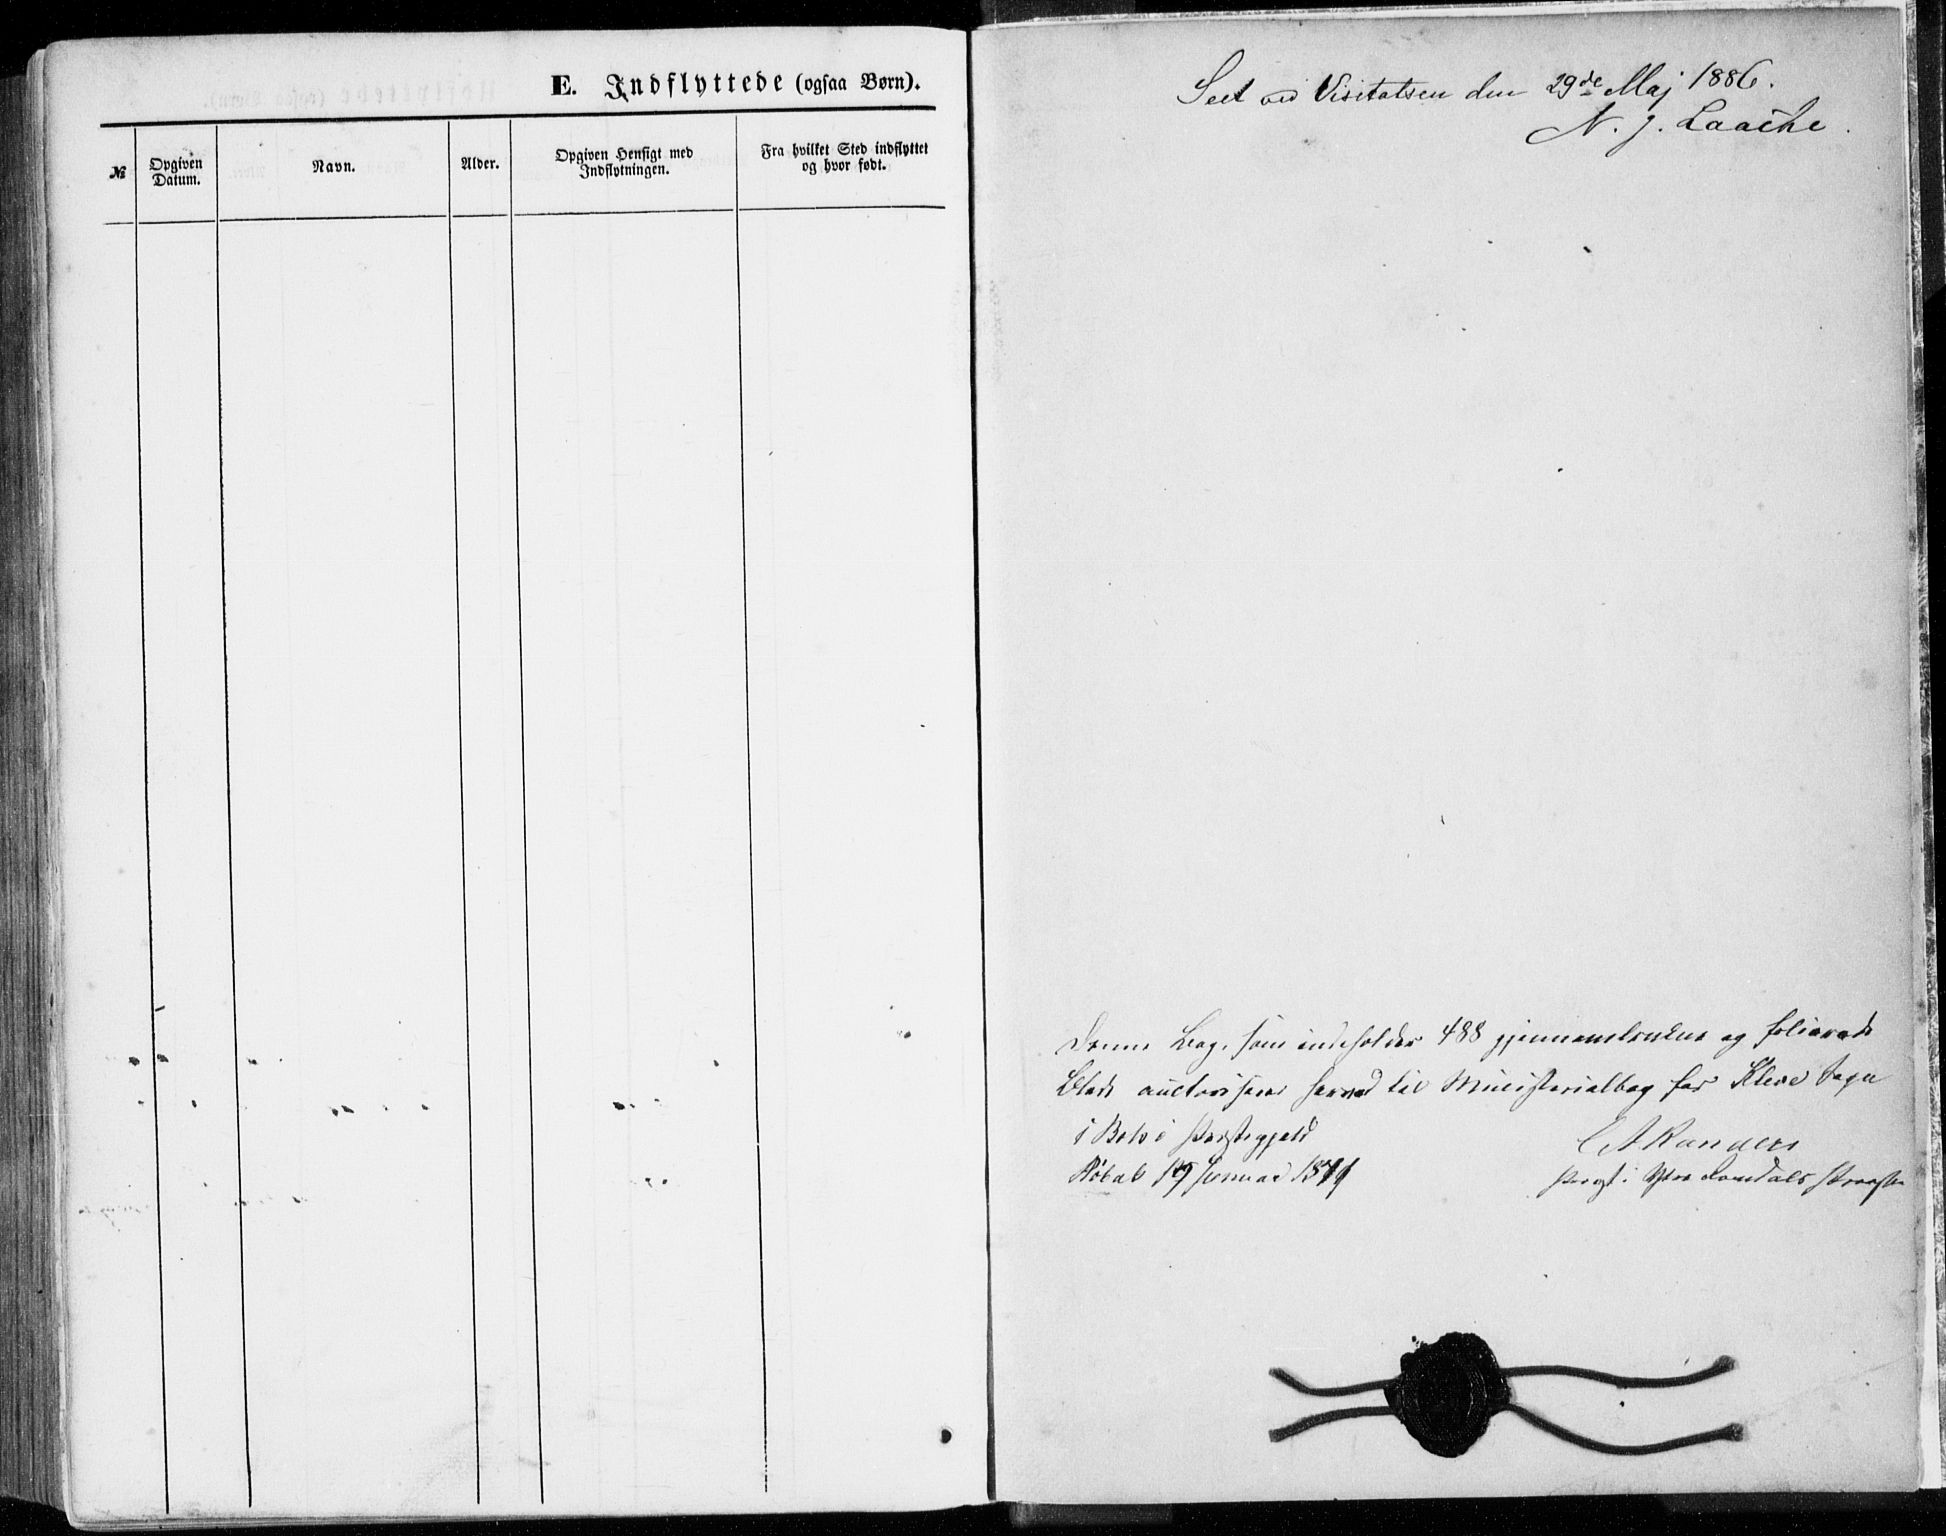 E. Indflyttede (ogsaa Børn).
№
Opgiven
Datum.
Navn.
Alder.
Opgiven Hensigt med
Indflytningen.
Fra hvilket Sted indflyttet
og hvor født.
Seet ved Visitatsen den 29de Maj 1886.
N. J. Laache.
Denne Bog, som indeholder 488 gjennemtrukne og folierede
Blade auctoriseres herved til Ministerialbog for Kleve Sogn
i Bolsø Præstegjeld
19 Januar
Randers
Provst i Romsdals Provsti